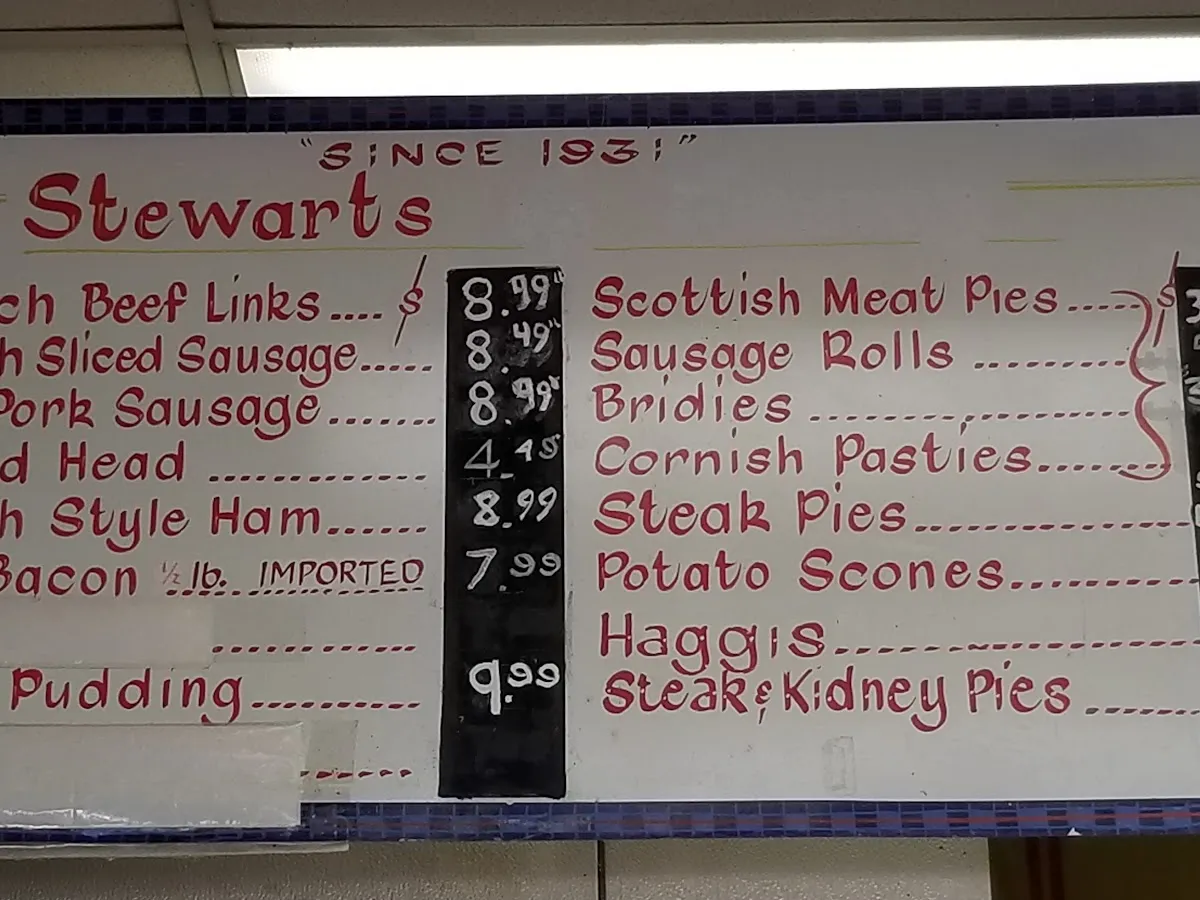 "SINCE 1931"
Stewarts
ch Beef Links .... $ 8.99"
h Sliced Sausage..... 8.49"
Pork Sausage....... 8.99"
d Head ............ 4.45
h Style Ham...... 8.99
Bacon ½ lb. IMPORTED 7.99
Pudding.......... 9.99
Scottish Meat Pies..... $
Sausage Rolls ........
Bridies .................
Cornish Pasties.......
Steak Pies................
Potato Scones..........
Haggis...................
Steak & Kidney Pies ......